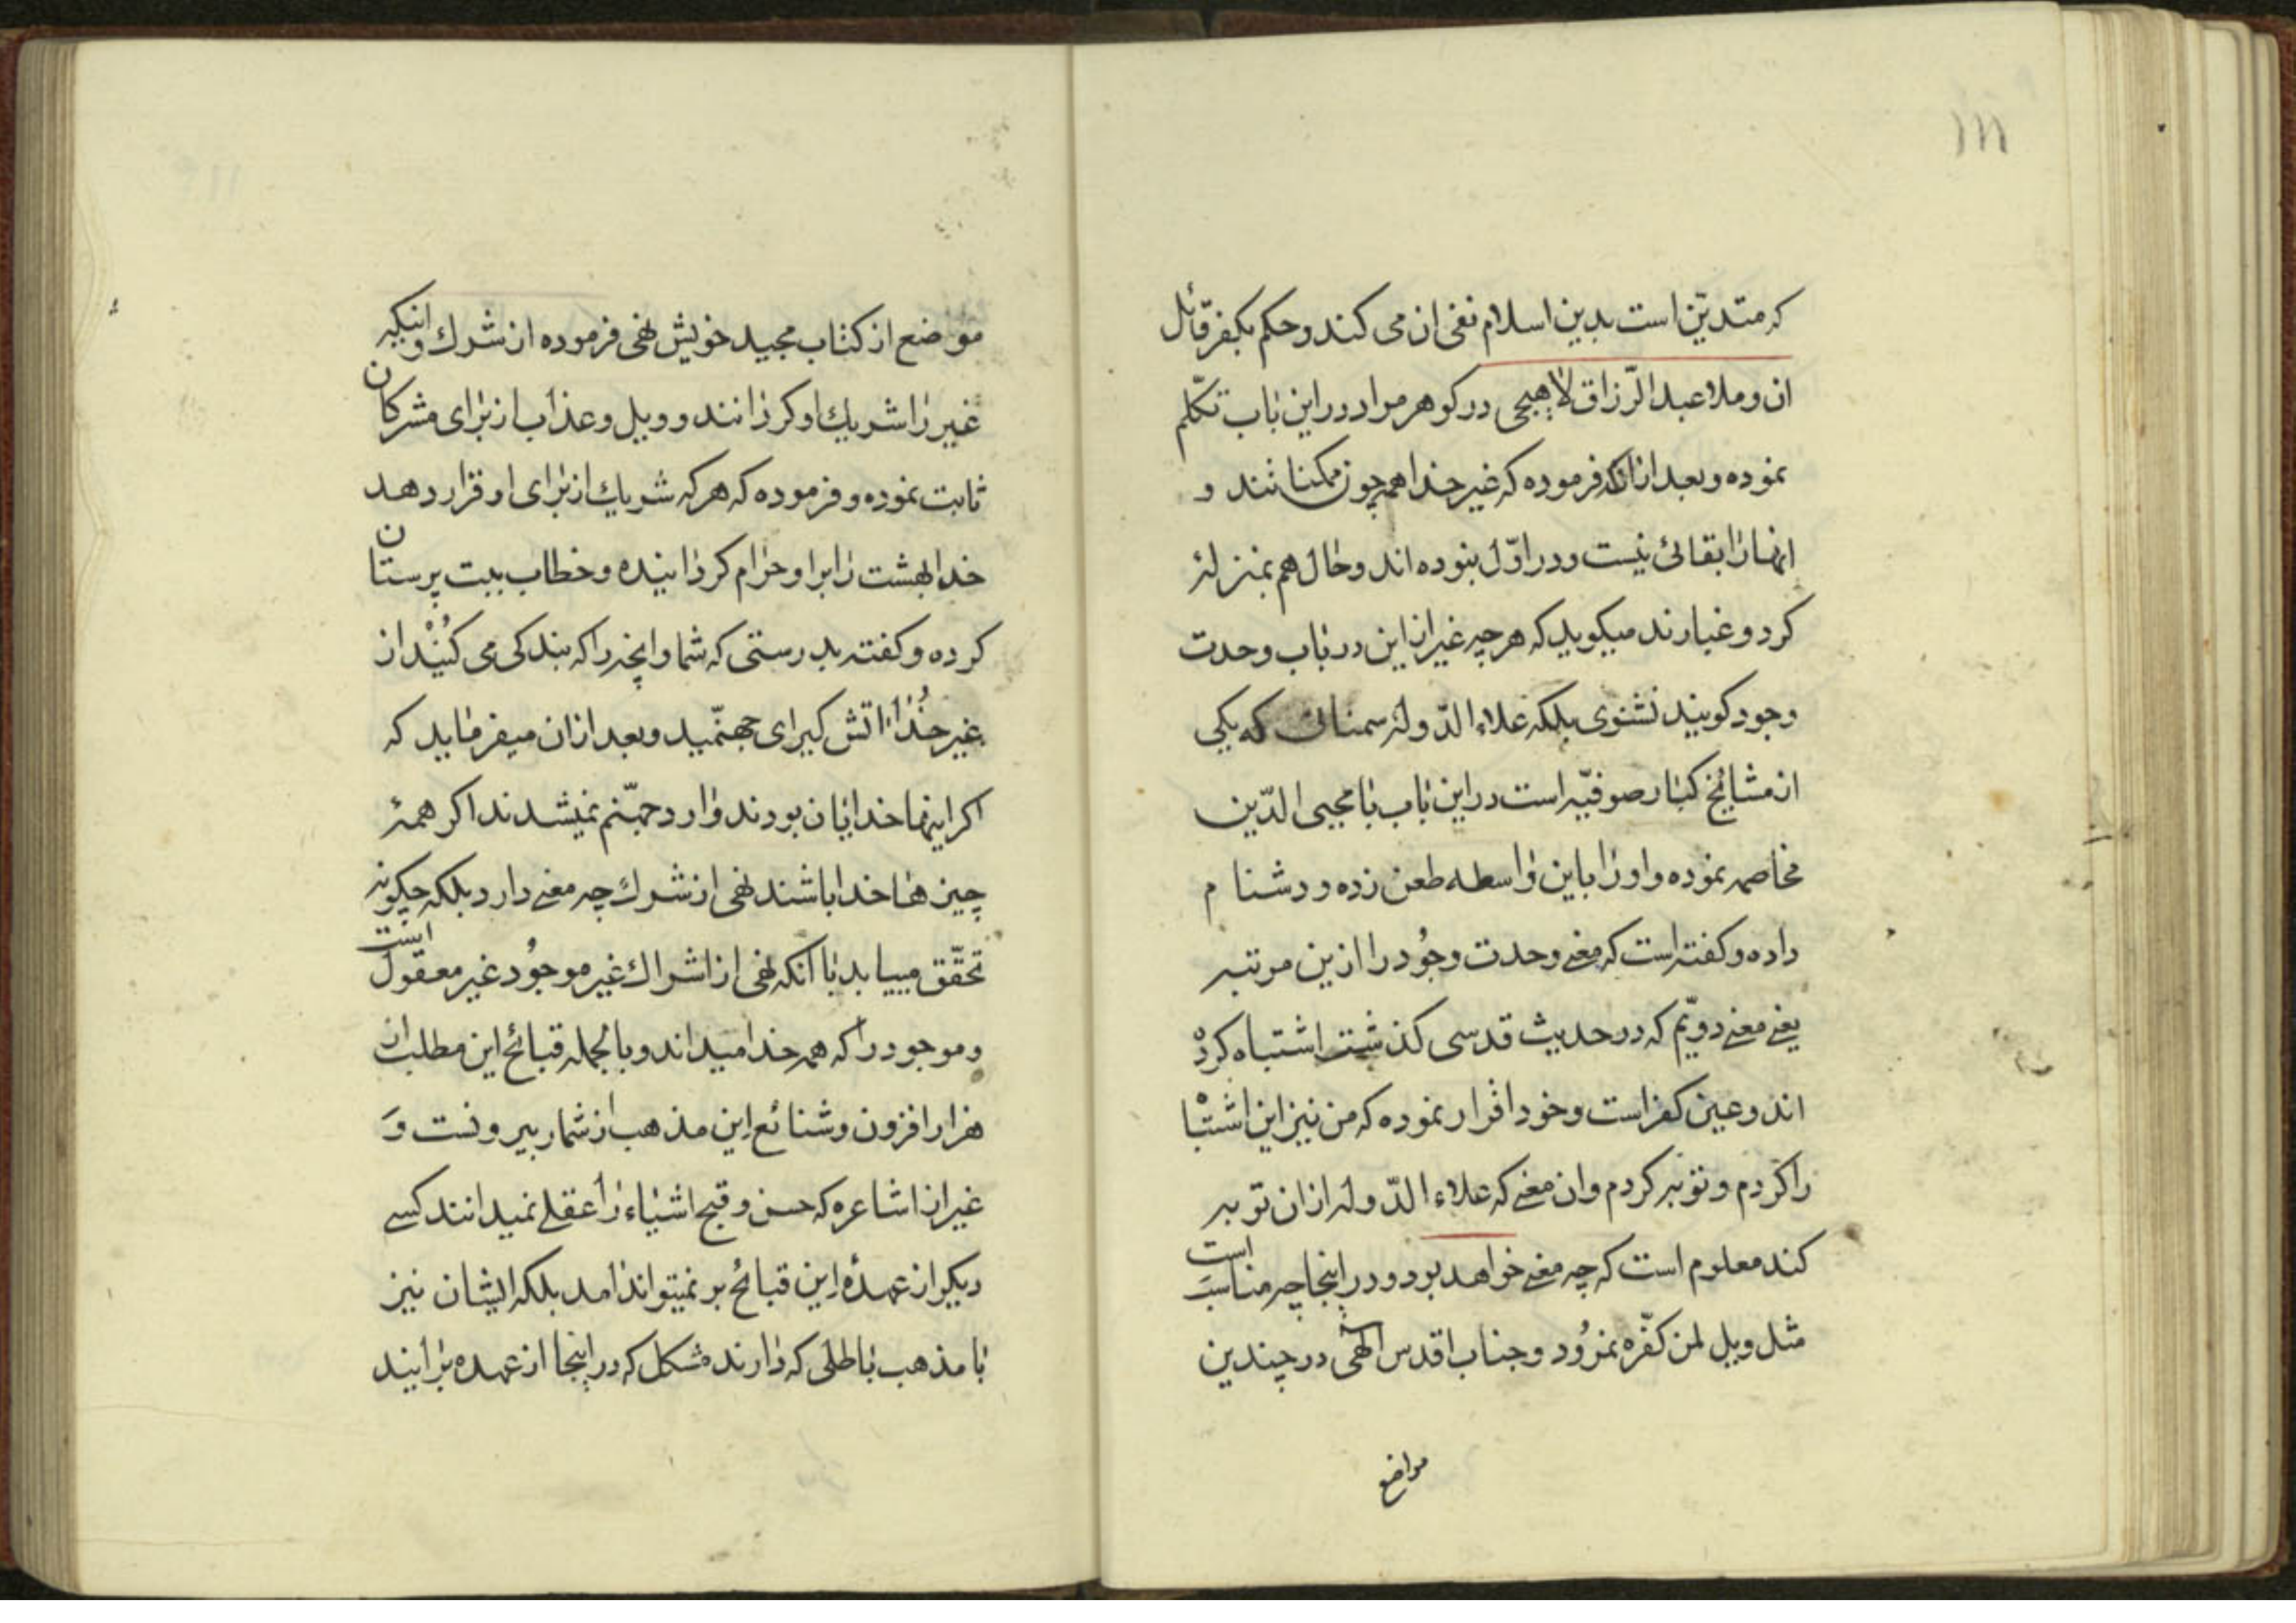 ۱۱۱
که متدیّن است بدین اسلام نفی ان می کنند و حکم بکفر قائل
ان و ملا عبد الرّزاق لاهیجی در کوهر مراد در این باب تکلّم
نموده و بعد از انکه فرموده که غیر خدا همه چون ممکنا تند و
انها را بقائی نیست و در اوّل نبوده اند و حال هم بمنزلۀ
کرد و غبارند میکوید که هر چه غیر از این در باب وحدت
وجود کویند نشنوی بلکه علاء الدّوله سمنانی که یکی
از مشایخ کبار صوفیّه است در این باب با محیی الدّین
مخاصمه نموده و او را باین واسطه طعن زده و دشنا م
داده و کفته است که معنی وحدت وجُود را ازین مرتبه
یعنی معنی دویّم که در حدیث قدسی کذشت اشتباه کرده
اند و عین کفر است و خود اقرار نموده که من نیز این اشتباه
را کردم و توبه کردم و ان معنی که علاء الدّوله از ان توبه
کند معلوم است که چه معنی خواهد بود و در اینجا چه مناسبت است
مثل ویل لمن کفّره نمرُود و جناب اقدس الهی در چندین
مواضع
موضع از کتاب مجید خویش نهی فرموده از شرك و اینکه
غیر را شریك او کردانند و ویل و عذاب از برای مشرکان
ثابت نموده و فرموده که هر که شریك از برای او قرار دهد
خدا بهشت را بر او حرام کردانیده و خطاب ببت پرستان
کرده و کفته بدرستی که شما و انچه را که بندکی می کُنْید از
غیر خُدا اتش کیرای جهنّمید و بعد از ان میفرماید که
اکر اینها خدایان بودند وارد جهنّم نمیشدند اکر همۀ
چیز ها خدا باشند نهی از شرك چه معنی دارد بلکه چکونه
تحقّق مییابد با انکه نهی از اشراك غیر موجُود غیر معقول است
و موجود را که همه خدا میداند و بالجمله قبائح این مطلب از
هزار افزون و شنائع این مذهب از شمار بیرونست وَ
غیر از اشاعره که حسن و قبح اشیاء را عقلی نمیدانند کسی
دیکر از عهدۀ این قبائح بر نمیتواند امد بلکه ایشان نیز
با مذهب باطلی که دارند مشکل که در اینجا از عهده بر ایند